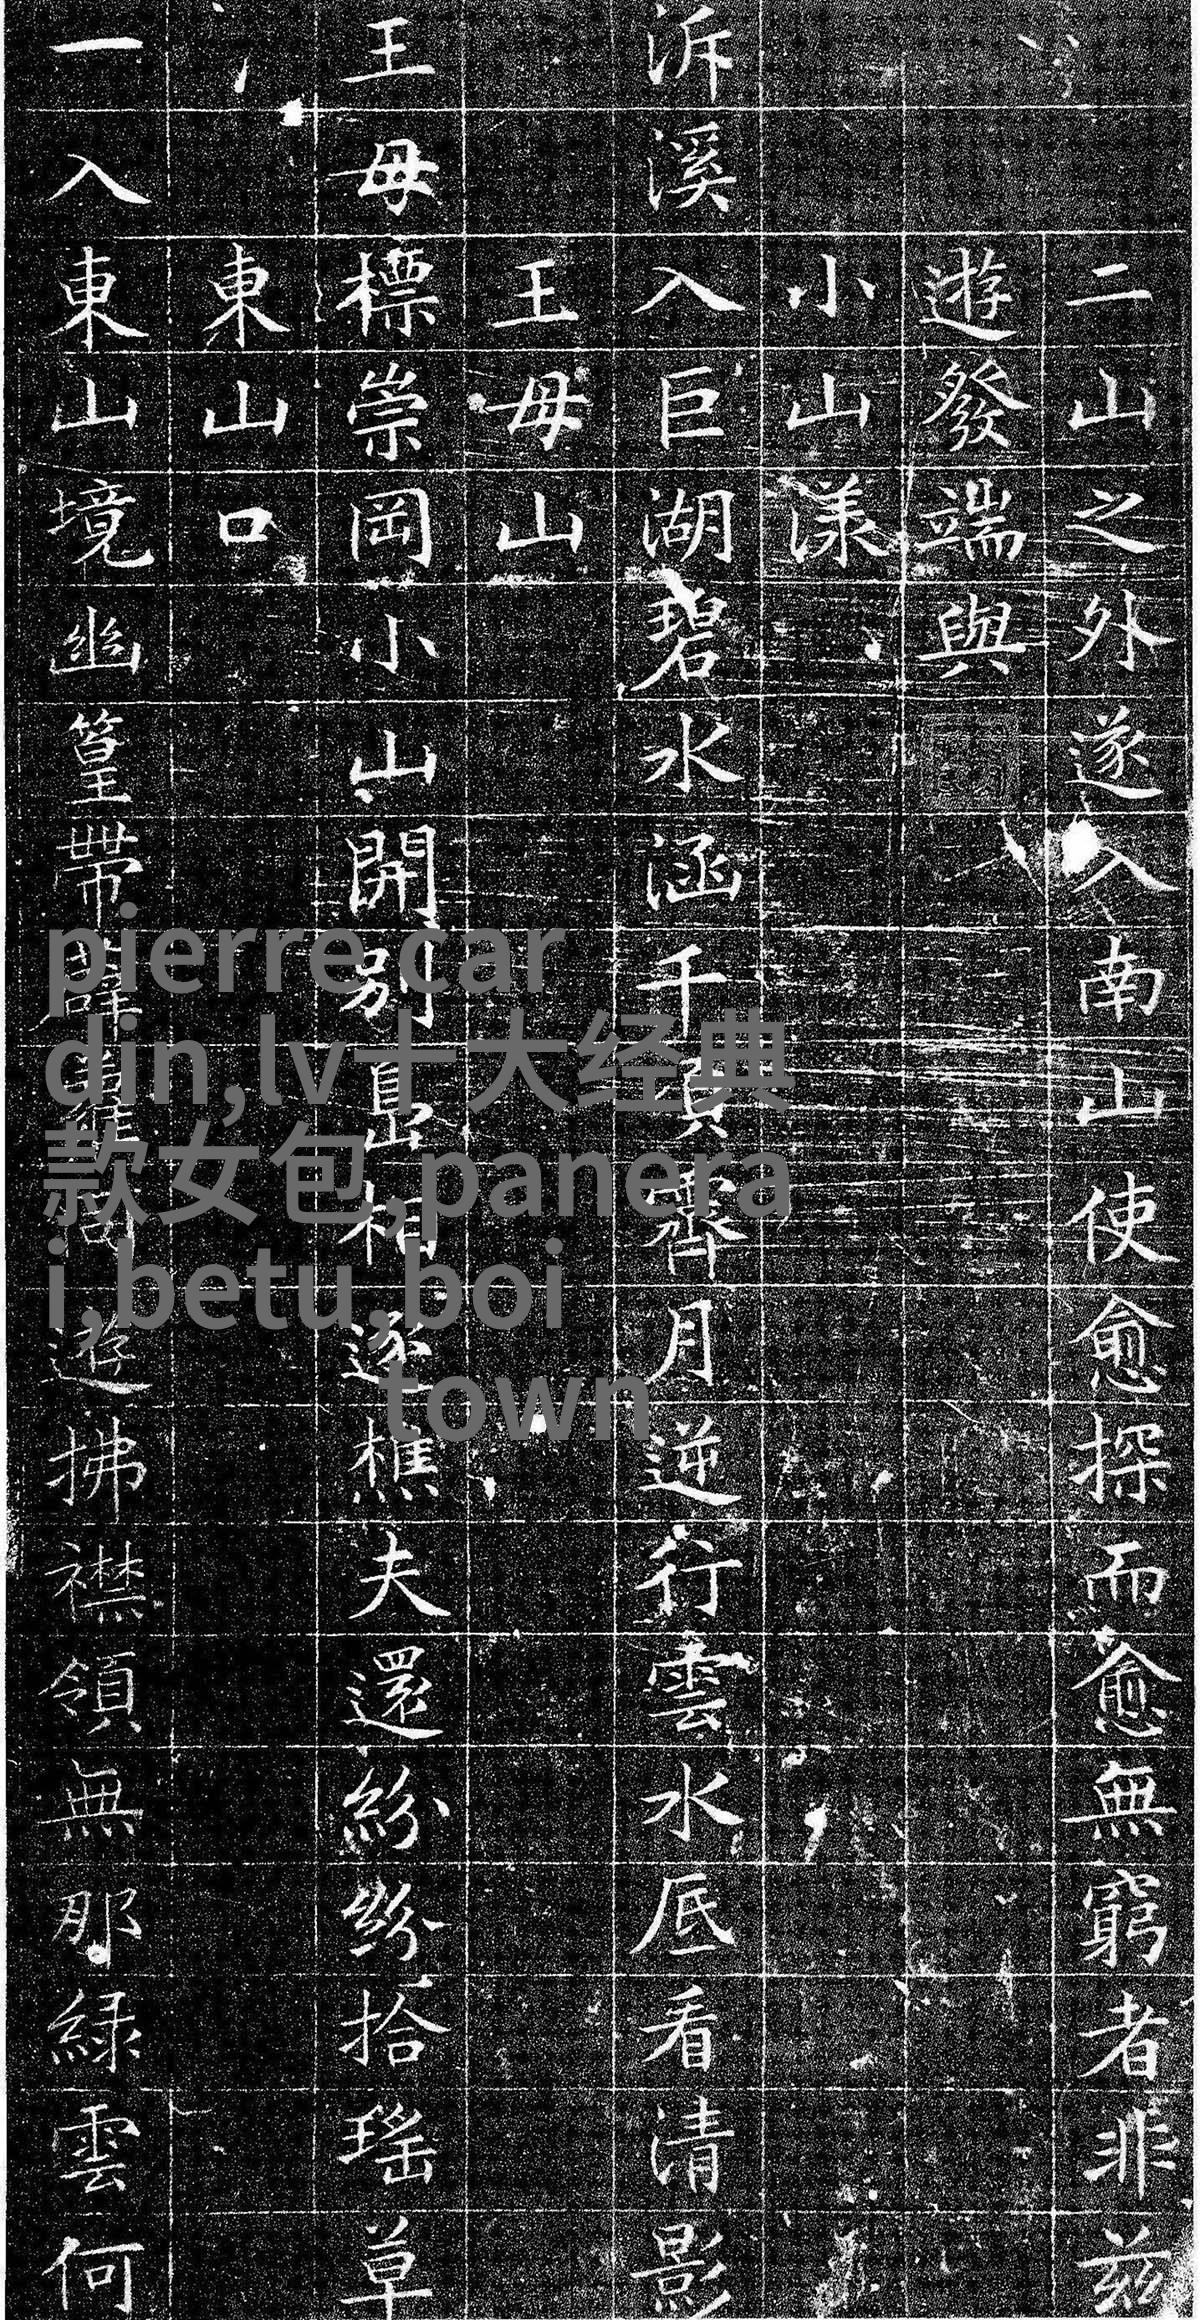 二山之外遂入南山使愈探而愈無窮者非兹
遊發端與
小山漾
泝溪入巨湖碧水涵千頃霽月逆行雲水底看清影
王母山
王母標崇岡小山開別島相逐樵夫還紛紛拾瑤草
東山口
一入東山境幽篁帶薜蘿遊拂襟領無那緑雲何
pierre car
din,lv十大经典
款女包,panera
i,betu,boi
town